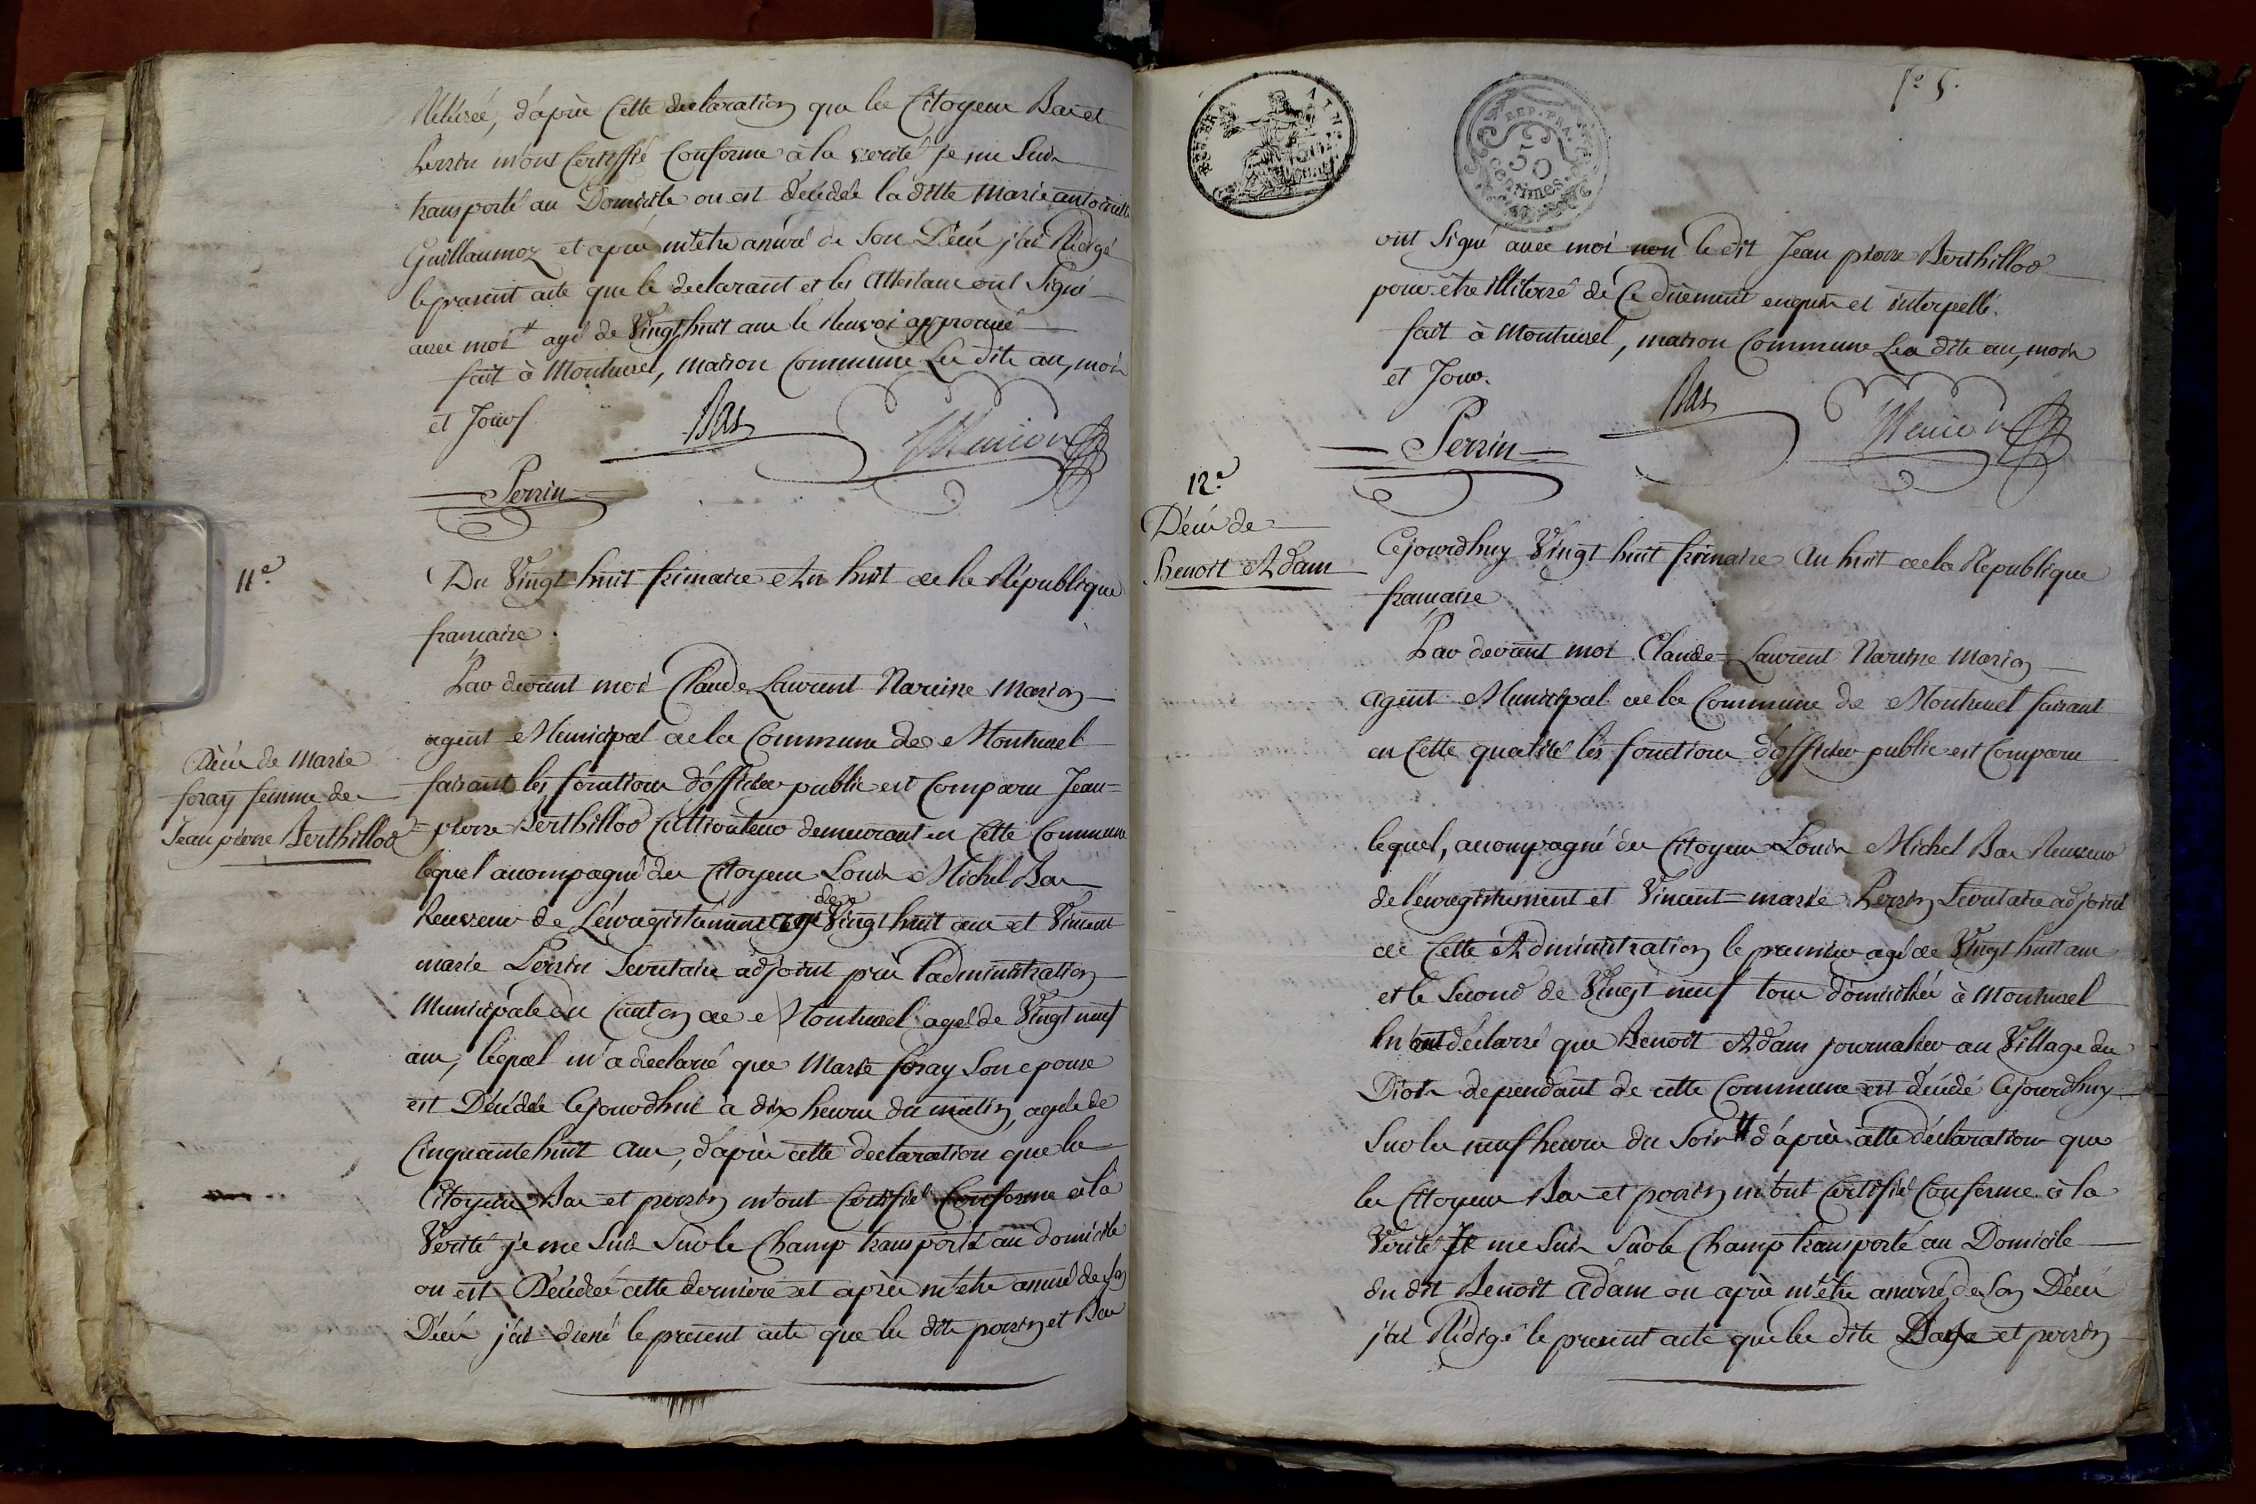 Rétirée, d'après cette declaration que les Citoyens Bas et
Perrin m'ont Certiffié Conforme à la verité je me suis
transporté au Domicile ou est décédée la ditte Marie antoinette
Guillaumoz et après m'etre assuré de son Décès j'ai Rédigé
le present acte que le declarant et les Attestans ont Signé
avec moi + agé de Vingt huit ans le renvoi approuvé
fait à Montluel, maison Commune les dits an, mois
et Jour
Bas
Marion
Perrin
11.e
Du Vingt huit frimaire An huit de la République
francaise.
Par devant moi Claude Laurent Narcisse Marion
agent Municipal de la Commune de Montluel
faisant les fonctions d'officier public est Comparu Jean=
Décès de Marie
foray femme de
Jean pierre Berthillod
=pierre Berthillod Cultivateur demeurant en Cette Commune
lequel acompagné des Citoyens Louis Michel Bas
Receveur de L'enregistrement agé de Vingt huit ans et Vincent
marie Perrin Secretaire adjoint près l'administration
Municipale du Canton de Montluel agé de Vingt neuf
ans, lequel m'a declaré que Marie foray son epouse
est Décédée Cejourdhui à dix heures du matin, agée de
Cinquante huit ans, d'après cette declaration que les
Citoyens Bas et perrin m'ont Certifié Conforme à la
Verité je me suis Sur le Champ transporté au domicile
ou est Décédée cette derniere et après m'etre assuré de son
Décès j'ai dressé le present acte que les dits perrin et Bas
f.o 5.
REP. FRA.
50
Centimes.
ont Signé avec moi non le dit Jean pierre Berthillod
pour etre illiteré de Ce duement enquis et interpellé.
fait à Montluel, maison Commune Les dits an, mois
et Jour.
Bas
Marion
Perrin
12.e
Décès de
Benoit Adam
Cejourdhuy Vingt huit frimaire An huit de la République
francaise
Par devant moi Claude=Laurent Narcisse Marion
agent Municipal de la Commune de Montluel faisant
en Cette qualité les fonctions d'officier public est Comparu
lequel, acompagné des Citoyens Louis Michel Bas Receveur
de l'enregistrement et Vincent=marie Perrin Secretaire adjoint
de Cette Administration le premier agé de Vingt huit ans
et le Second de Vingt neuf tous domiciliés à Montluel
m'ont déclaré que Benoit Adam journalier au Village de
dependant de cette Commune est décédé Cejourdhuy
Sur les neuf heures du Soir d'après cette déclaration que
les Citoyens Bas et perrin m'ont Certifié Conforme à la
Verité Je me suis Sur le Champ transporté au Domicile
du dit Benoit adam ou après m'être assuré de son Décès
j'ai Rédigé le present acte que les dits Bas et perrin